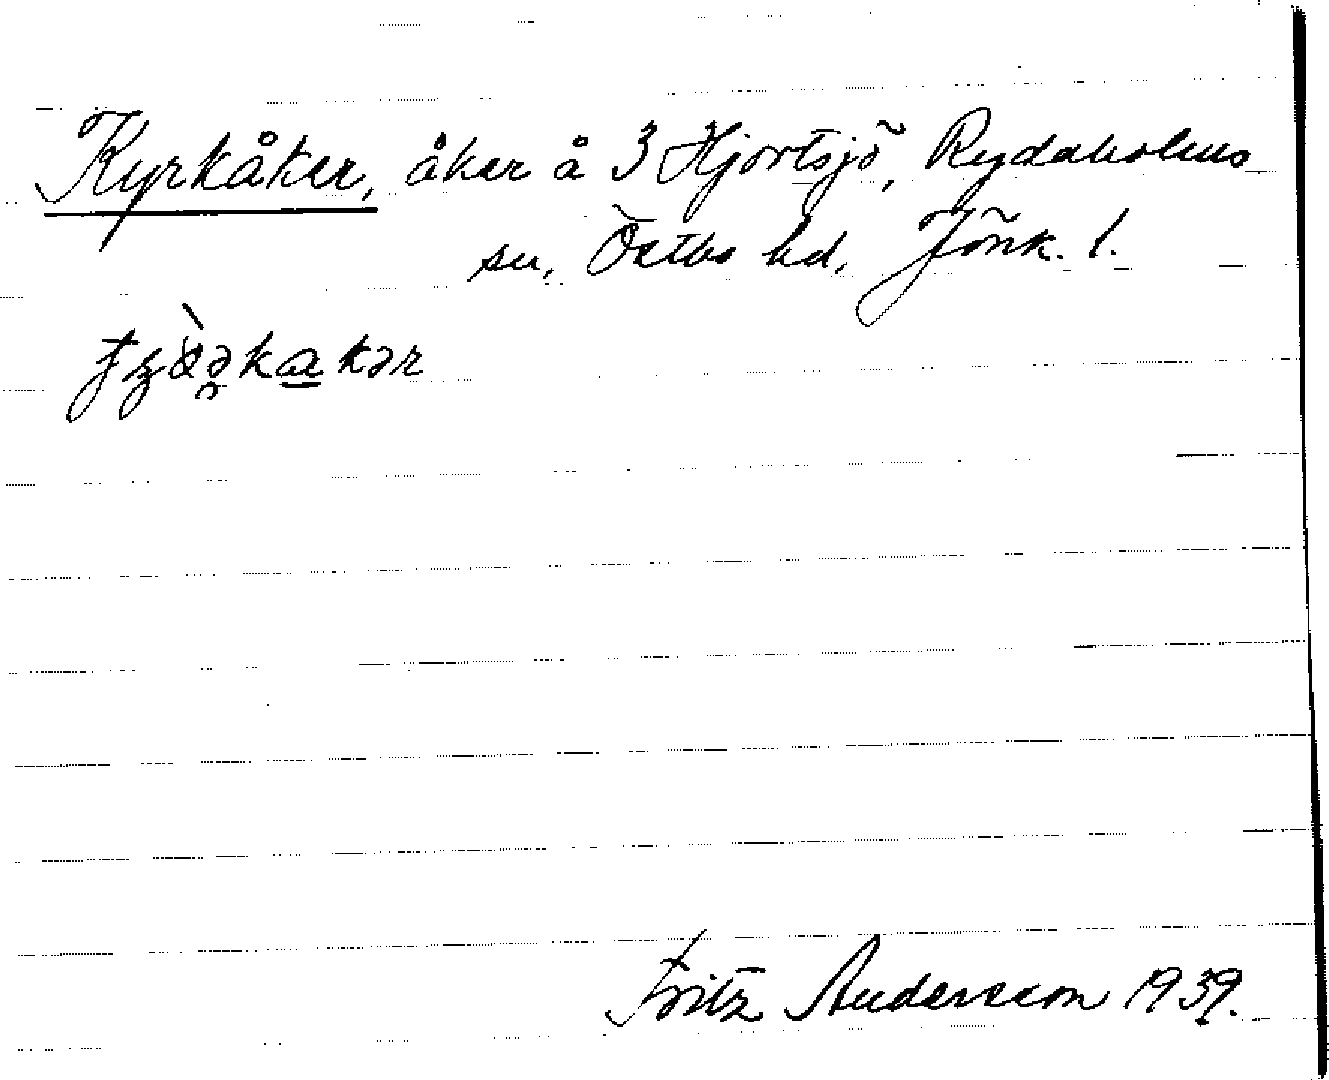 Kyrkåker, åker å 3 Hjortsjö, Rydaholms
sn, Östbo hd, Jönk. l.
Fritz Andersson 1939.